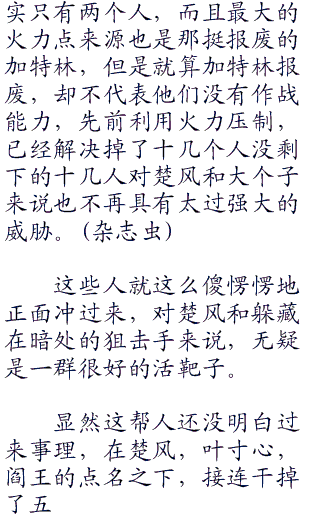 实只有两个人，而且最大的
火力点来源也是那挺报废的
加特林，但是就算加特林报
废，却不代表他们没有作战
能力，先前利用火力压制，
已经解决掉了十几个人没剩
下的十几人对楚风和大个子
来说也不再具有太过强大的
威胁。(杂志虫)
这些人就这么傻愣愣地
正面冲过来，对楚风和躲藏
在暗处的狙击手来说，无疑
是一群很好的活靶子。
显然这帮人还没明白过
来事理，在楚风，叶寸心，
阎王的点名之下，接连干掉
了五